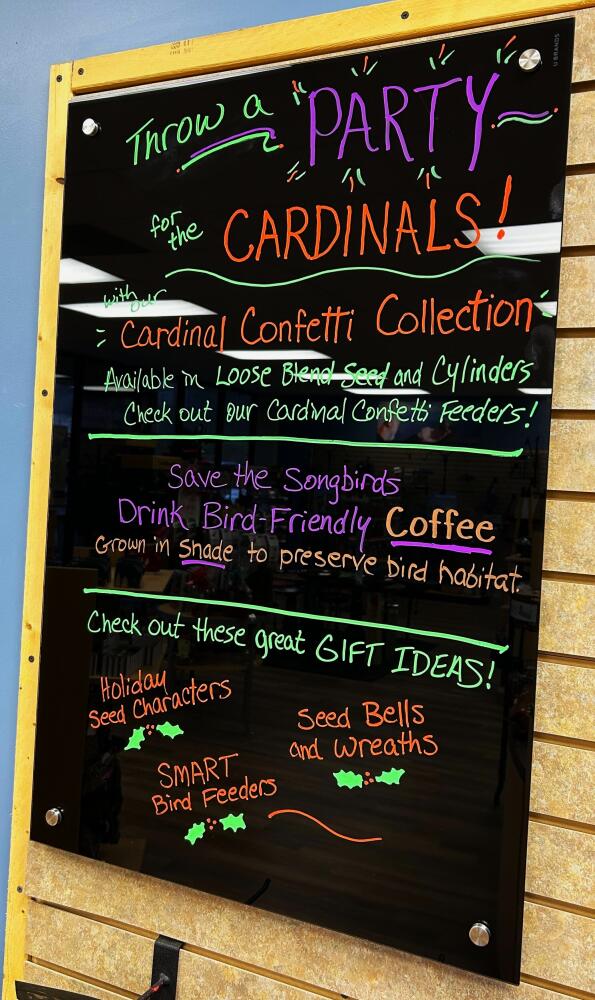 Throw a PARTY
for the CARDINALS!
with our
Cardinal Confetti Collection
Available in Loose Blend Seed and Cylinders
Check out our Cardinal Confetti Feeders!
Save the Songbirds
Drink Bird-Friendly Coffee
Grown in Shade to preserve bird habitat.
Check out these great GIFT IDEAS!
Holiday
Seed Characters
Seed Bells
and Wreaths
SMART
Bird Feeders
U BRANDS